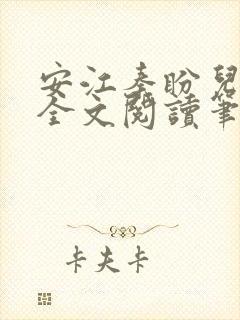 安江秦盼兒
全文閱讀筆
卡夫卡